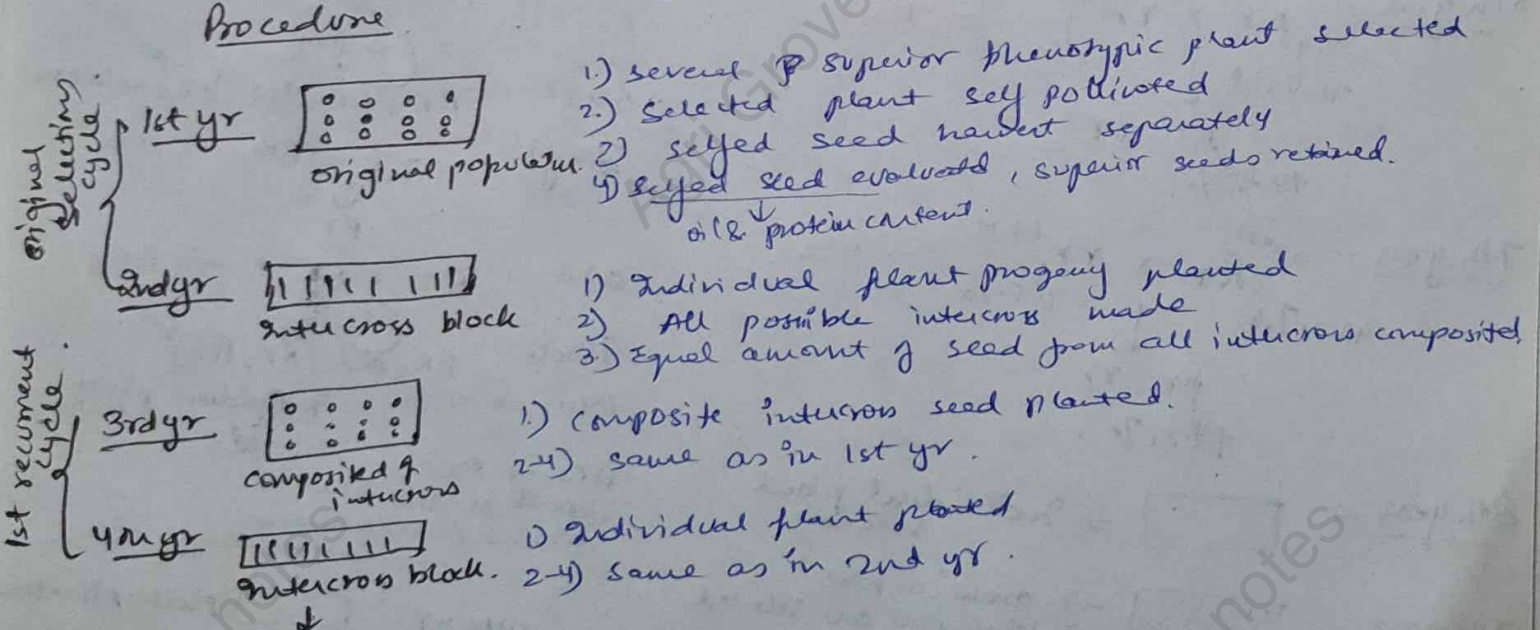 Procedure.
original
selecting
cycle.
1st yr
original populatn.
1.) several superior phenotypic plant selected
2.) Selected plant self pollinated
2) selfed seed harvest separately
4) selfed seed evaluated, superior seeds retained.
↓
oil & protein content.
2nd yr
Intercross block
1) Individual plant progeny planted
2) All possible intercross made
3.) Equal amount of seed from all intercross composited
1st recurrent
cycle.
3rd yr
composited of
intercross
1.) composite intercross seed planted.
2-4) same as in 1st yr.
4th yr
Intercross block.
1) Individual plant planted
2-4) same as in 2nd yr.
↓
Agri Grove
notes
notes